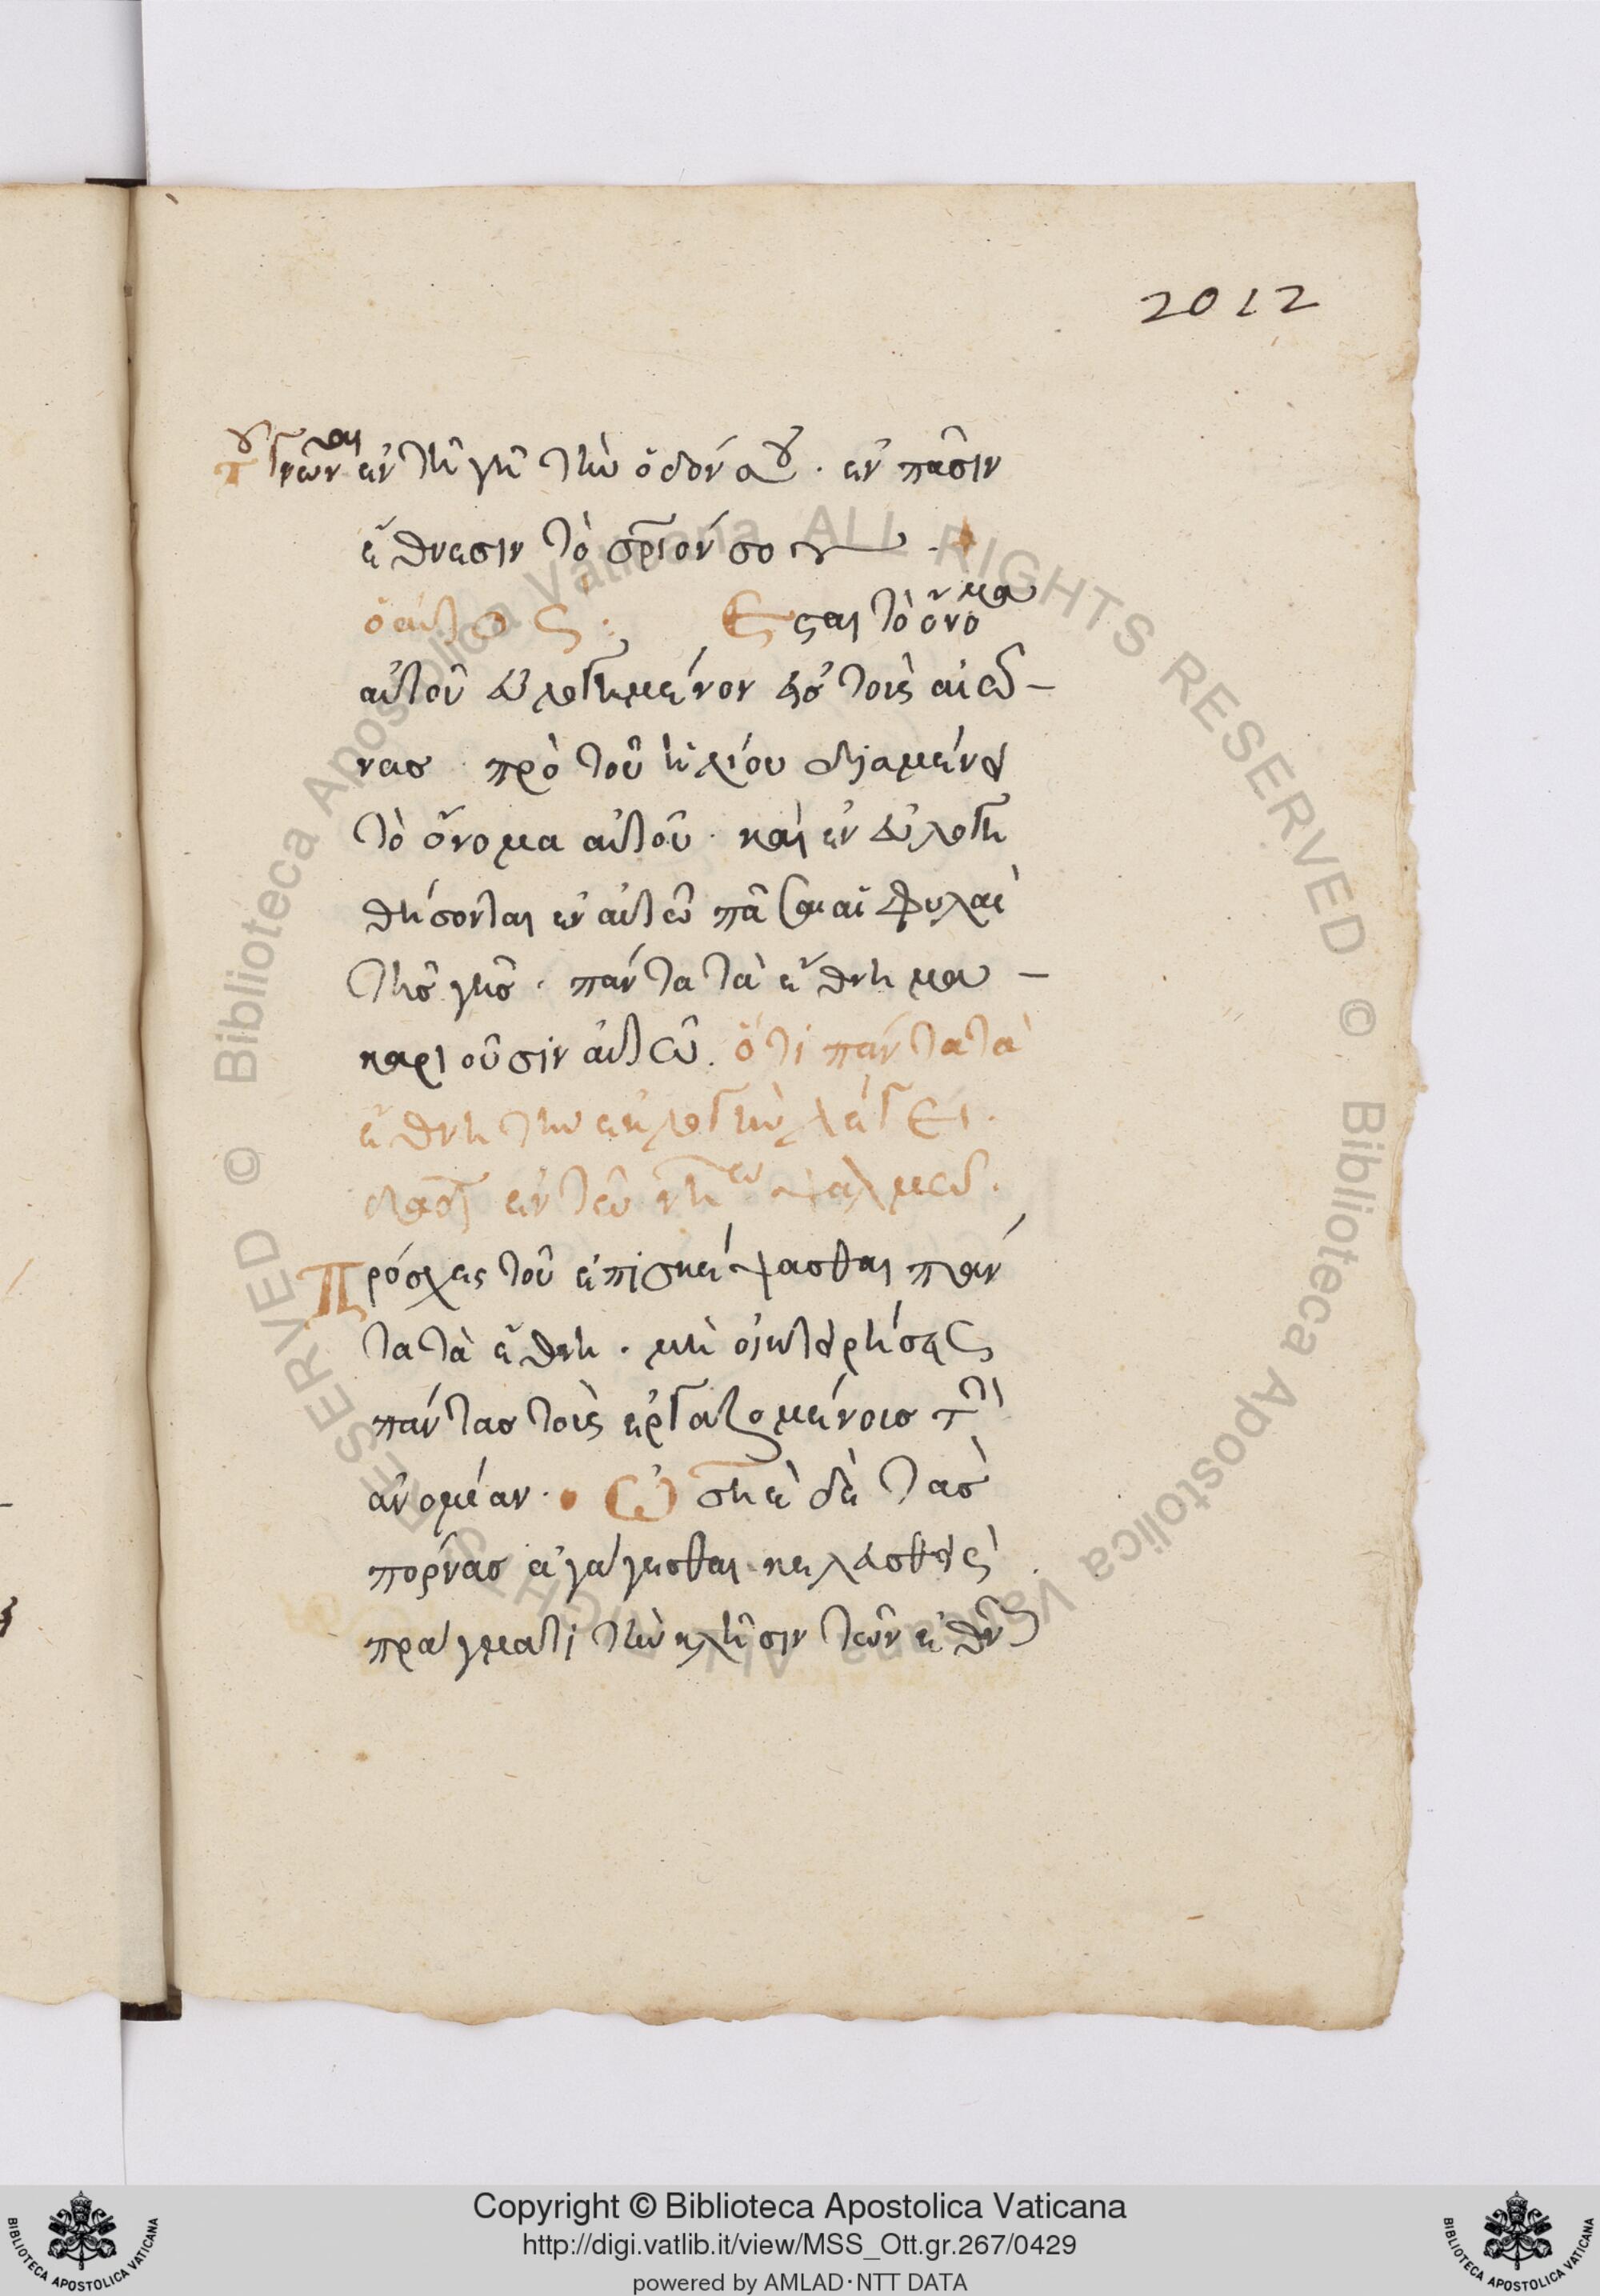 2012
τοῦ γνῶναι ἐν τῆ γῆ τὴν ὁδόν σου · ἐν πᾶσιν
ἔθνεσιν τὸ σριόν σου ·
ὁ αὐτος : Εσται τὸ ὄνομα
αὐτοῦ εὐλογημένον εἰσ τοὺς αἰῶ-
νασ · πρὸ τοῦ ἡλίου διαμένει
τὸ ὄνομα αὐτοῦ · καὶ ἐν εὐλογη
θήσονται ἐν αὐτῶ πᾶσαι αἱ φυλαὶ
τῆσ γῆσ · πάντα τὰ ἔθνη μα-
καριοῦσιν αὐτῶ. ὅτι πάντα τὰ
ἔθνη την εκλογὴν λέγει ·
δαδ ἐν τῶ νη ω ψαλμῶ ·
Πρόσχες τοῦ ἐπισκέψασθαι πάν
τα τὰ ἔθνη · μὴ οἰκτειρήσης
πάντας τοὺς ἐργαζομένουσ τὴ
ἀνομίαν · Ὡσηὲ δὲ τὰσ
πόρνασ ἀγαγέσθαι κελευσθεὶς
πράγματι τὴν κλῆσιν τῶν ἐθν
Copyright © Biblioteca Apostolica Vaticana
http://digi.vatlib.it/view/MSS_Ott.gr.267/0429
powered by AMLAD·NTT DATA
BIBLIOTECA APOSTOLICA VATICANA
BIBLIOTECA APOSTOLICA VATICANA
© Biblioteca Apostolica Vaticana ALL RIGHTS RESERVED © Biblioteca Apostolica Vaticana ALL RIGHTS RESERVED